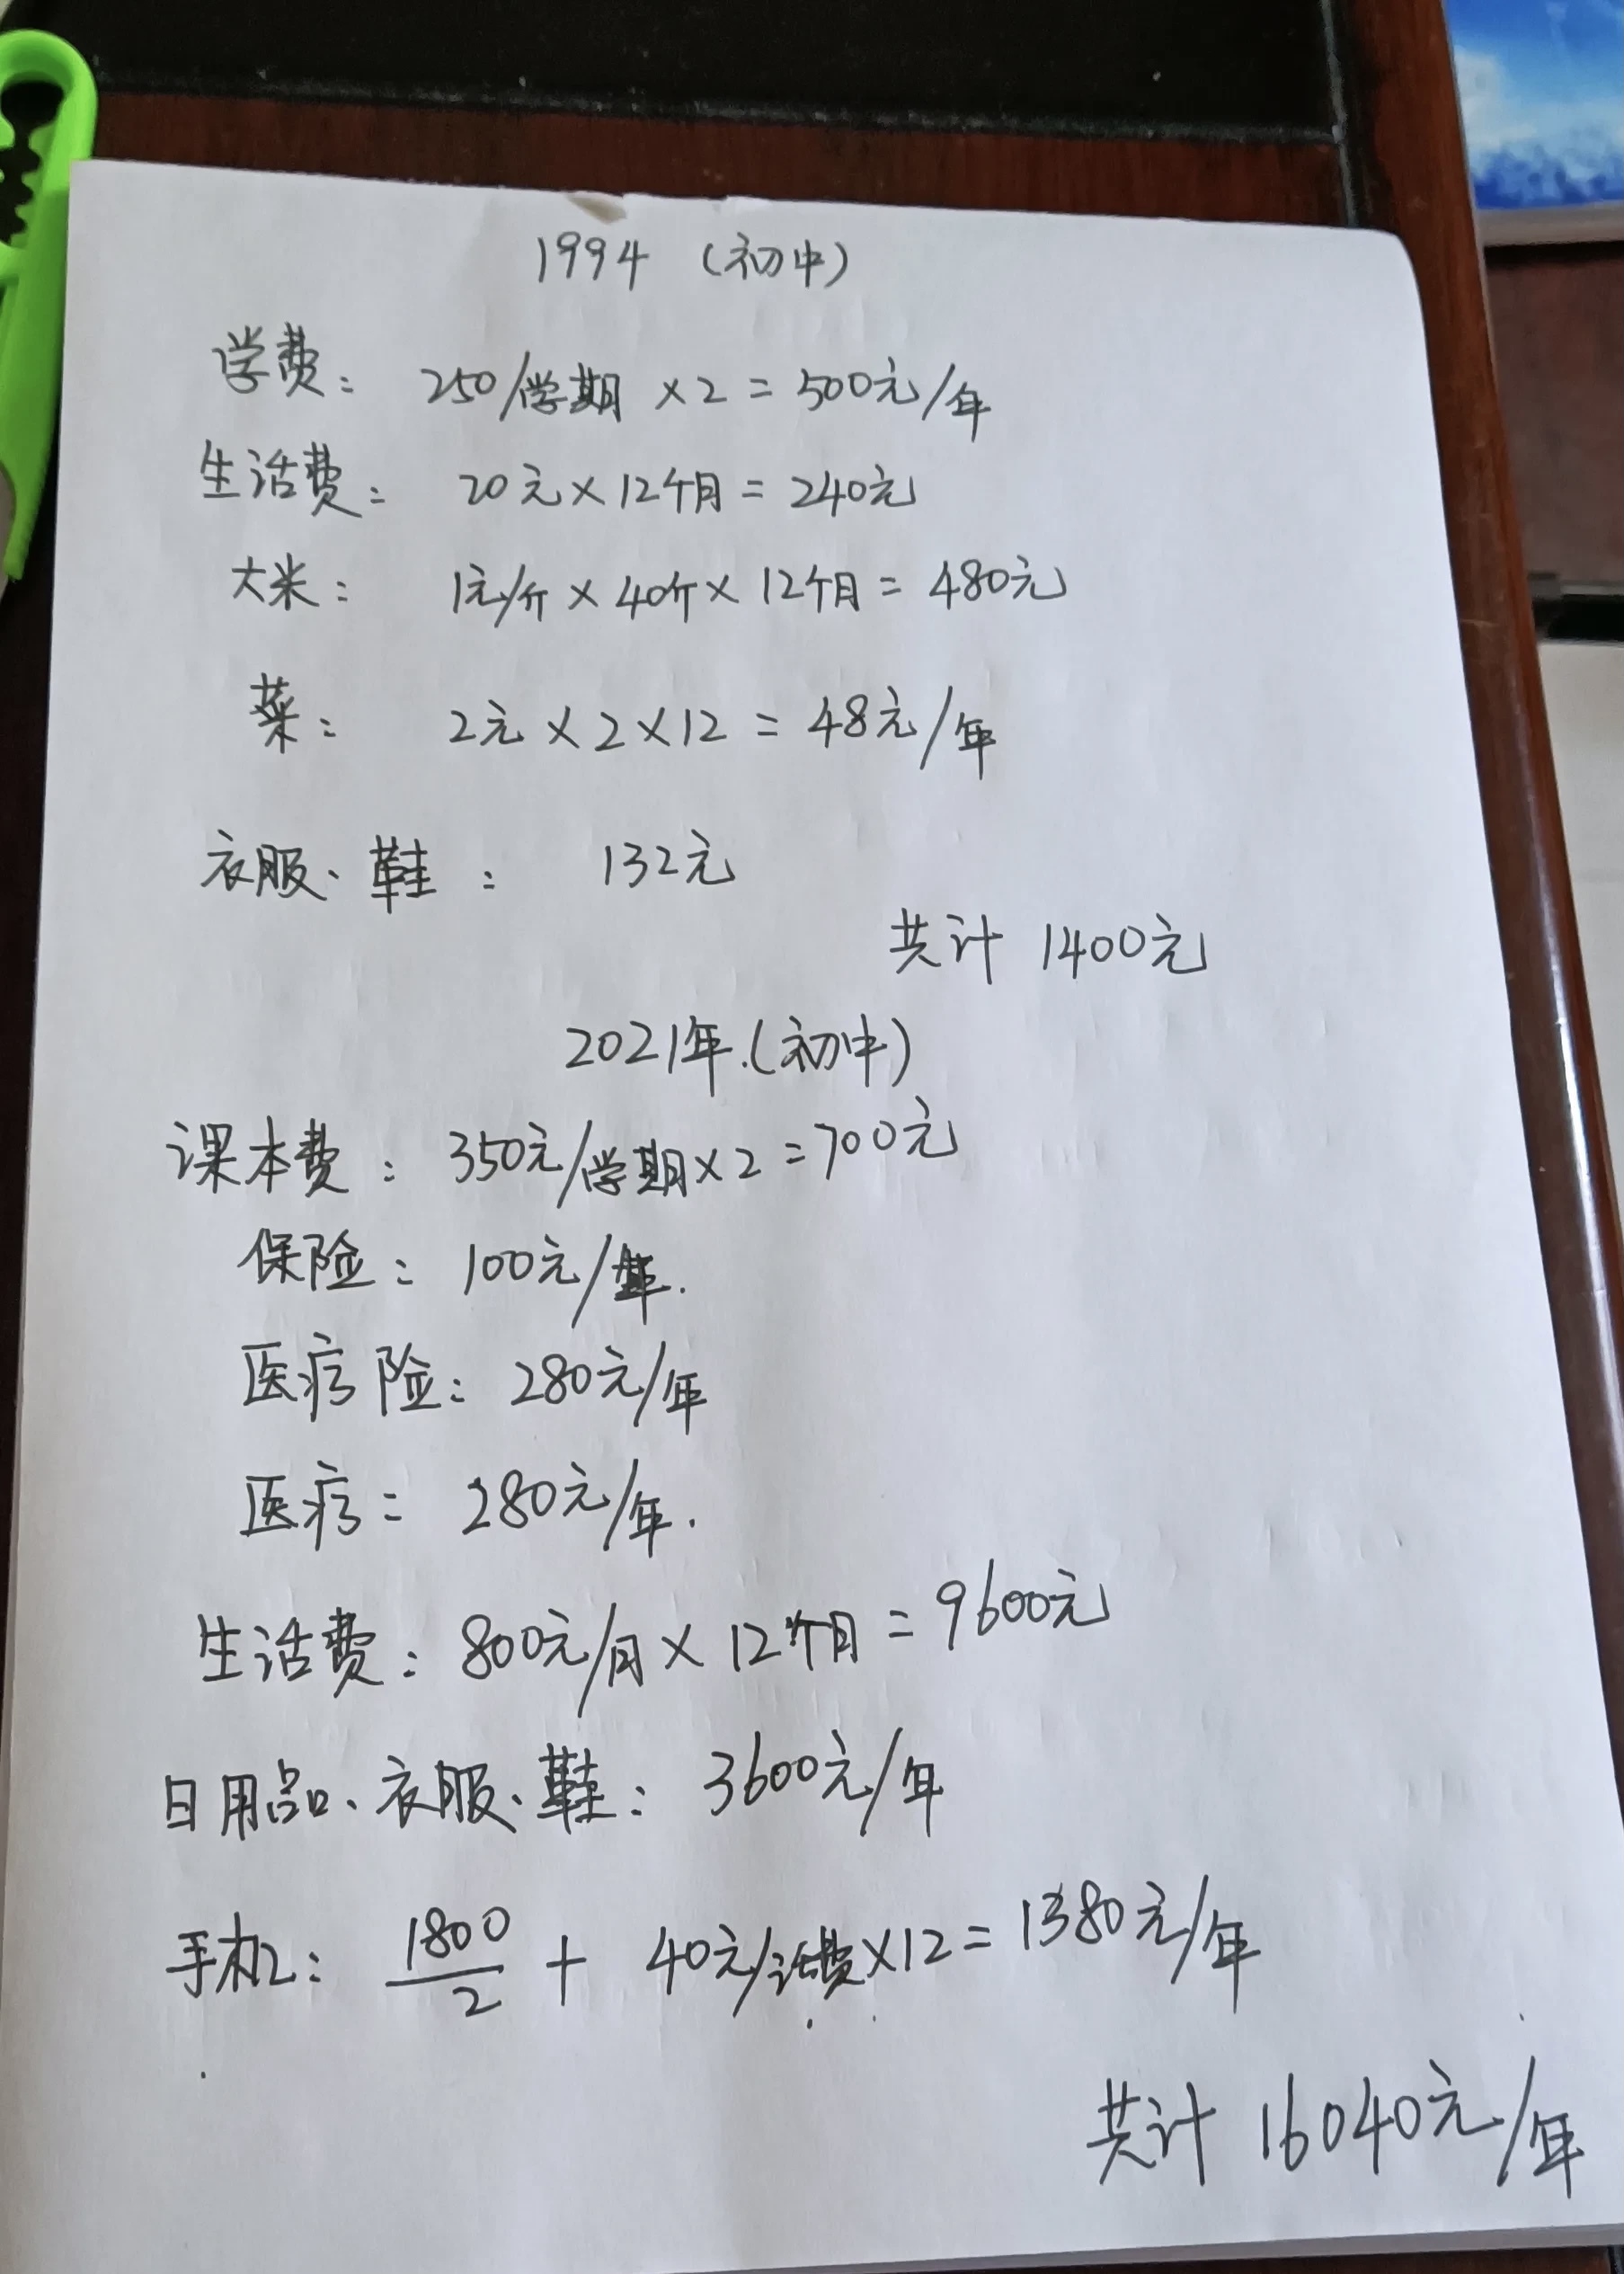 1994 (初中)
学费: 250/学期 ×2 = 500元/年
生活费: 20元×12个月 = 240元
大米: 1元/斤 × 40斤 × 12个月 = 480元
菜: 2元 × 2 × 12 = 48元/年
衣服、鞋: 132元
共计 1400元
2021年.(初中)
课本费: 350元/学期×2 = 700元
保险: 100元/年.
医疗险: 280元/年
医疗: 280元/年.
生活费: 800元/月 × 12个月 = 9600元
日用品、衣服、鞋: 3600元/年
手机: 1800/2 + 40元/话费×12 = 1380元/年
共计 16040元/年